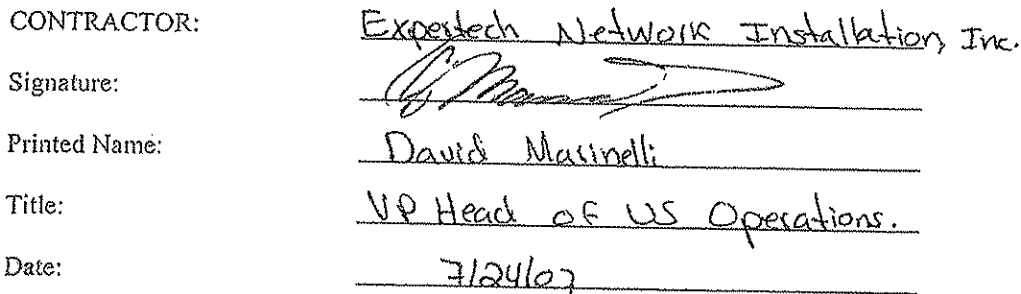 CONTRACTOR: Expertech Network Installation, Inc.
Signature:
Printed Name: David Marinelli
Title: VP Head of US Operations.
Date: 7/24/07